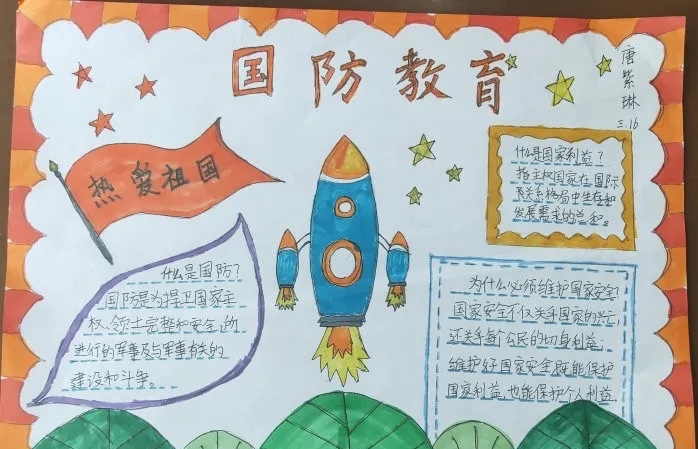 国防教育
唐紫琳
三.16
热爱祖国
什么是国家利益?
指主权国家在国际
关系格局中生存和
发展需求的总和。
什么是国防?
国防是为捍卫国家主
权、领土完整和安全,所
进行的军事及与军事有关的
建设和斗争。
为什么必须维护国家安全
国家安全不仅关乎国家的兴亡,
还关乎每个公民的切身利益;
维护好国家安全,既能保护
国家利益,也能保护个人利益